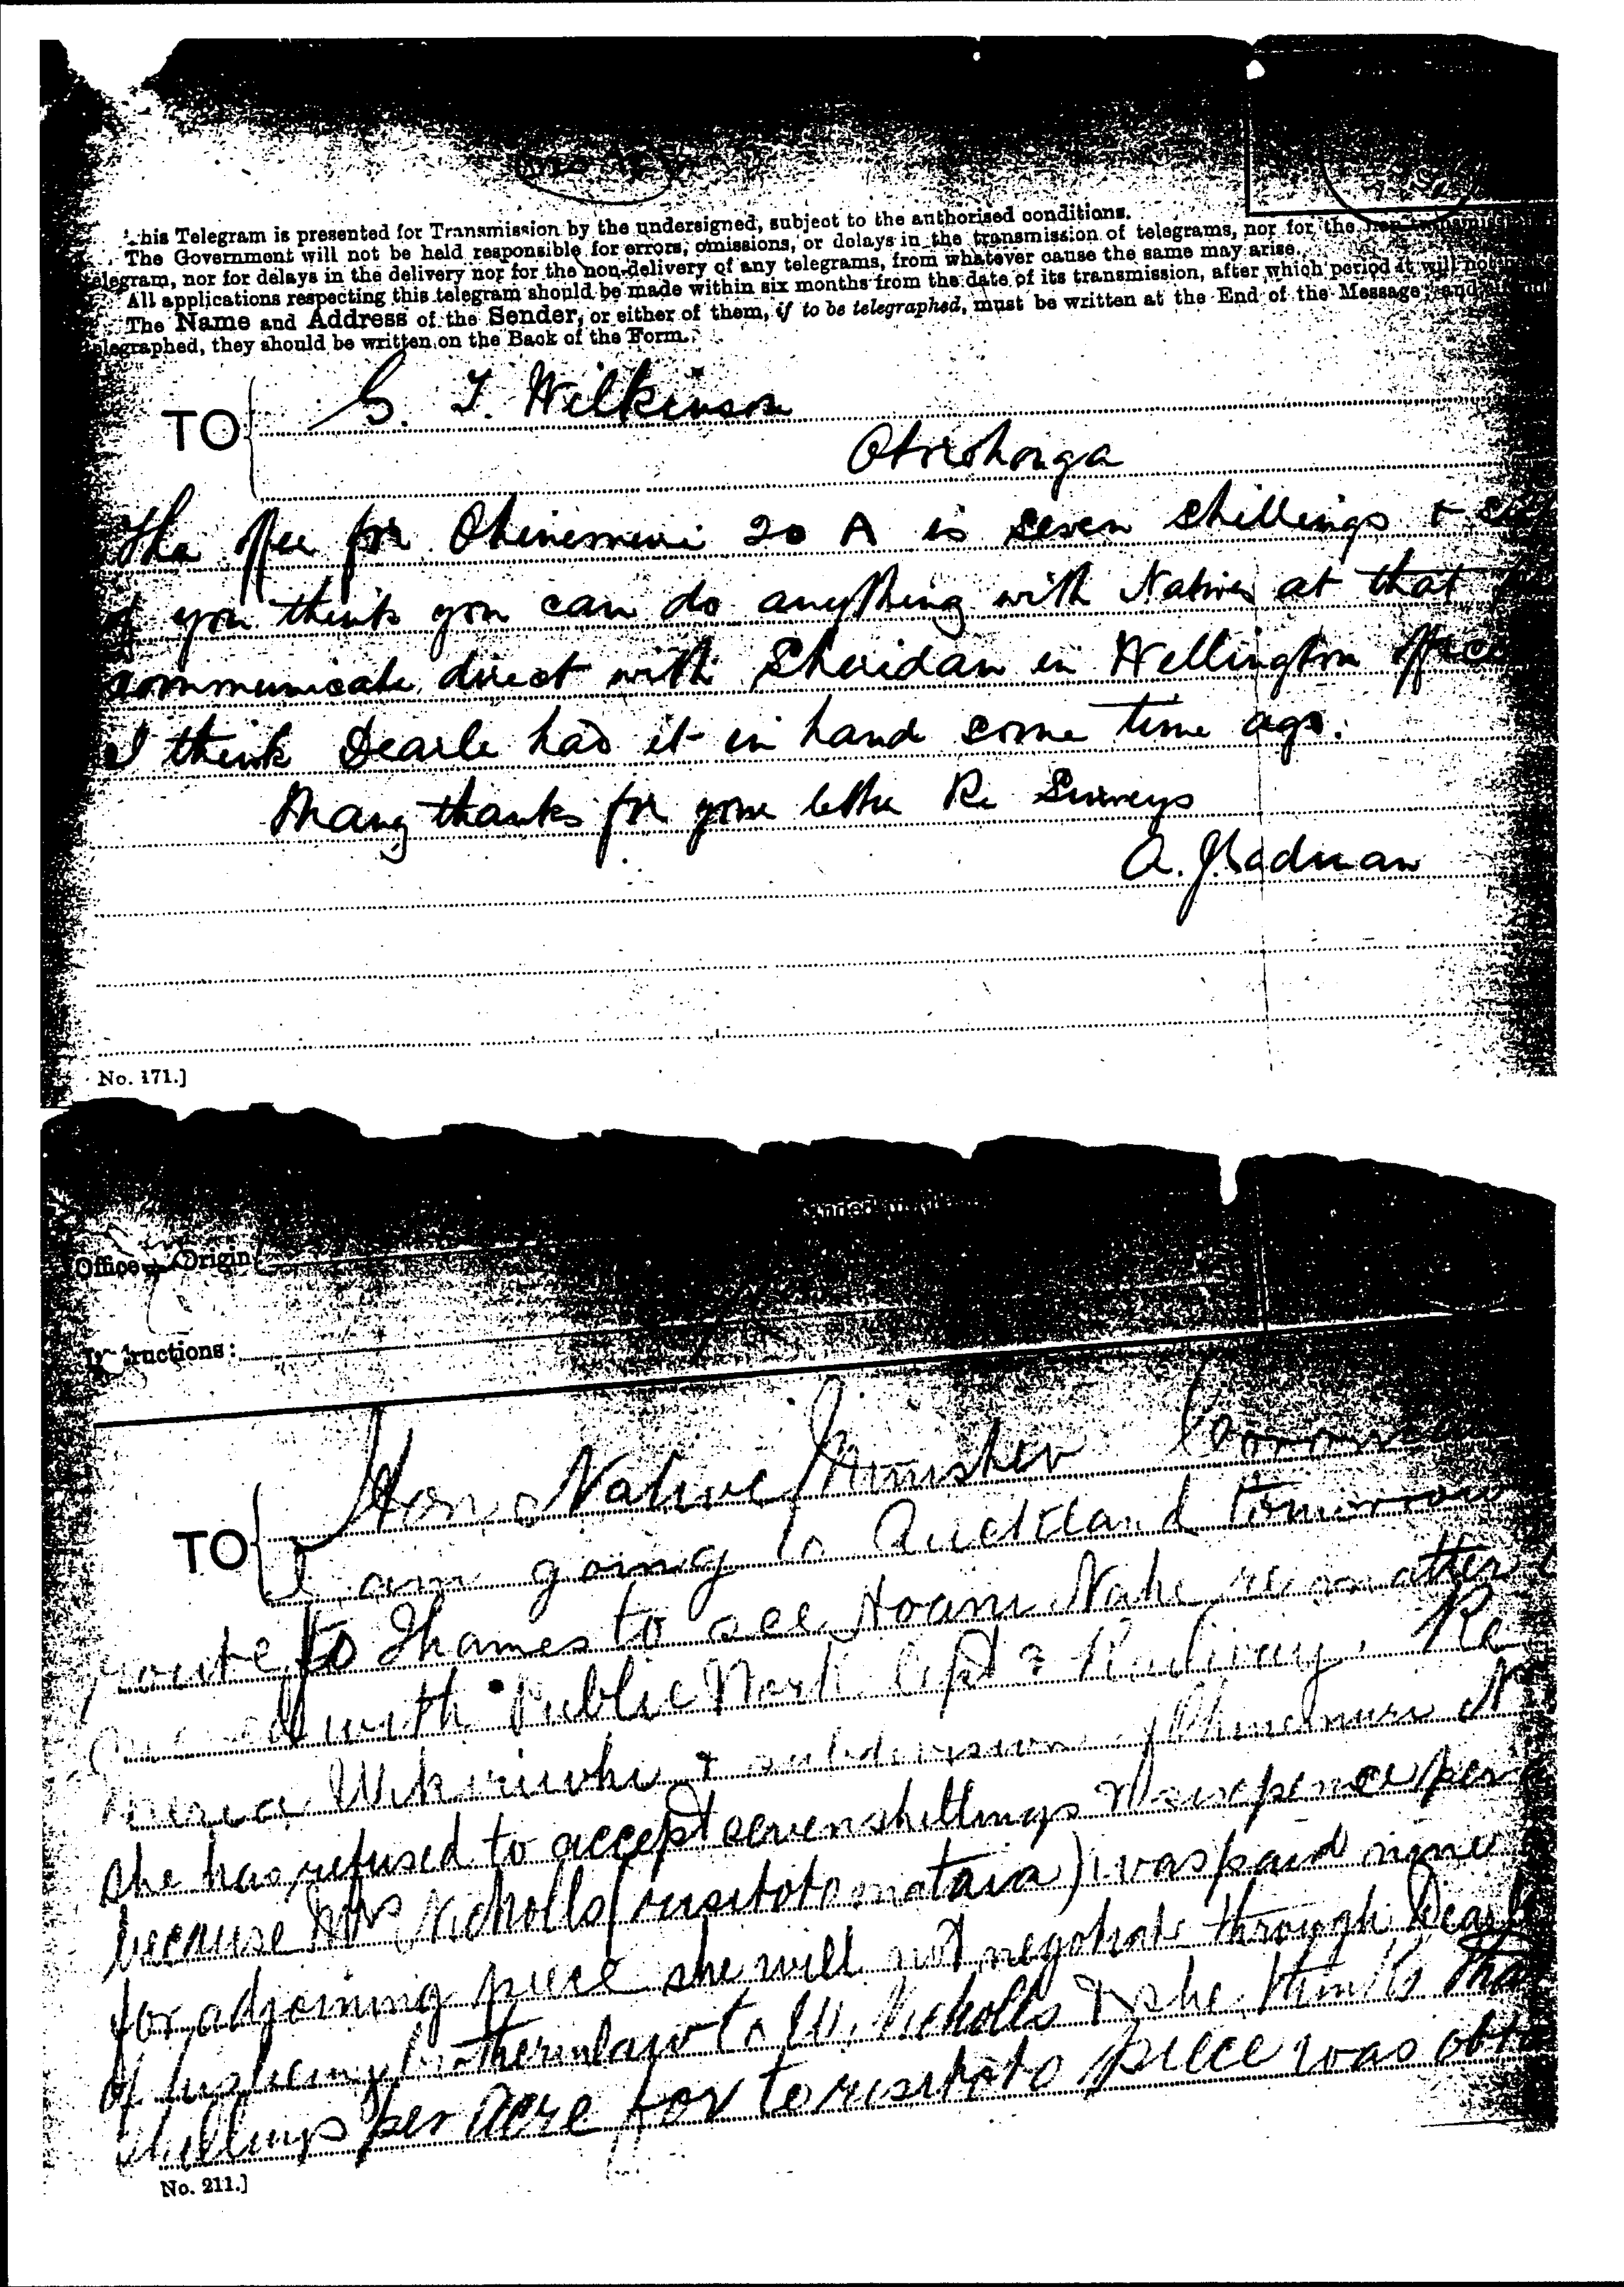 This Telegram is presented for Transmission by the undersigned, subject to the authorised conditions.
The Government will not be held responsible for errors, omissions, or delays in the transmission of telegrams, nor for the
telegram, nor for delays in the delivery nor for the non-delivery of any telegrams, from whatever cause the same may arise.
All applications respecting this telegram should be made within six months from the date of its transmission, after which period it will not
The Name and Address of the Sender, or either of them, if to be telegraphed, must be written at the End of the Message; and
telegraphed, they should be written on the Back of the Form.
TO G. T. Wilkinson
Otorohonga
The for Ohinemuri 20 A is seven shillings +
if you think you can do anything with Natives at that
communicate direct with Sheridan in Wellington office
I think Dearle had it in hand some time ago.
Many thanks for your letter Re Surveys
A. J. Cadman
No. 171.]
Office Origin
Instructions:
TO Hon Native Minister
I am going to Auckland tomorrow
route to Thames to see Hoani Nahe re matter
with Public Work Dept & Railway. Re
& subdivision of Ohinemuri
she has refused to accept seven shillings & sixpence per
because Mrs Nicholls ) was paid nine
for adjoining piece she will not negotiate through
of his being brother in law to W. Nicholls & she thinks that
shillings per acre for piece was
No. 211.]